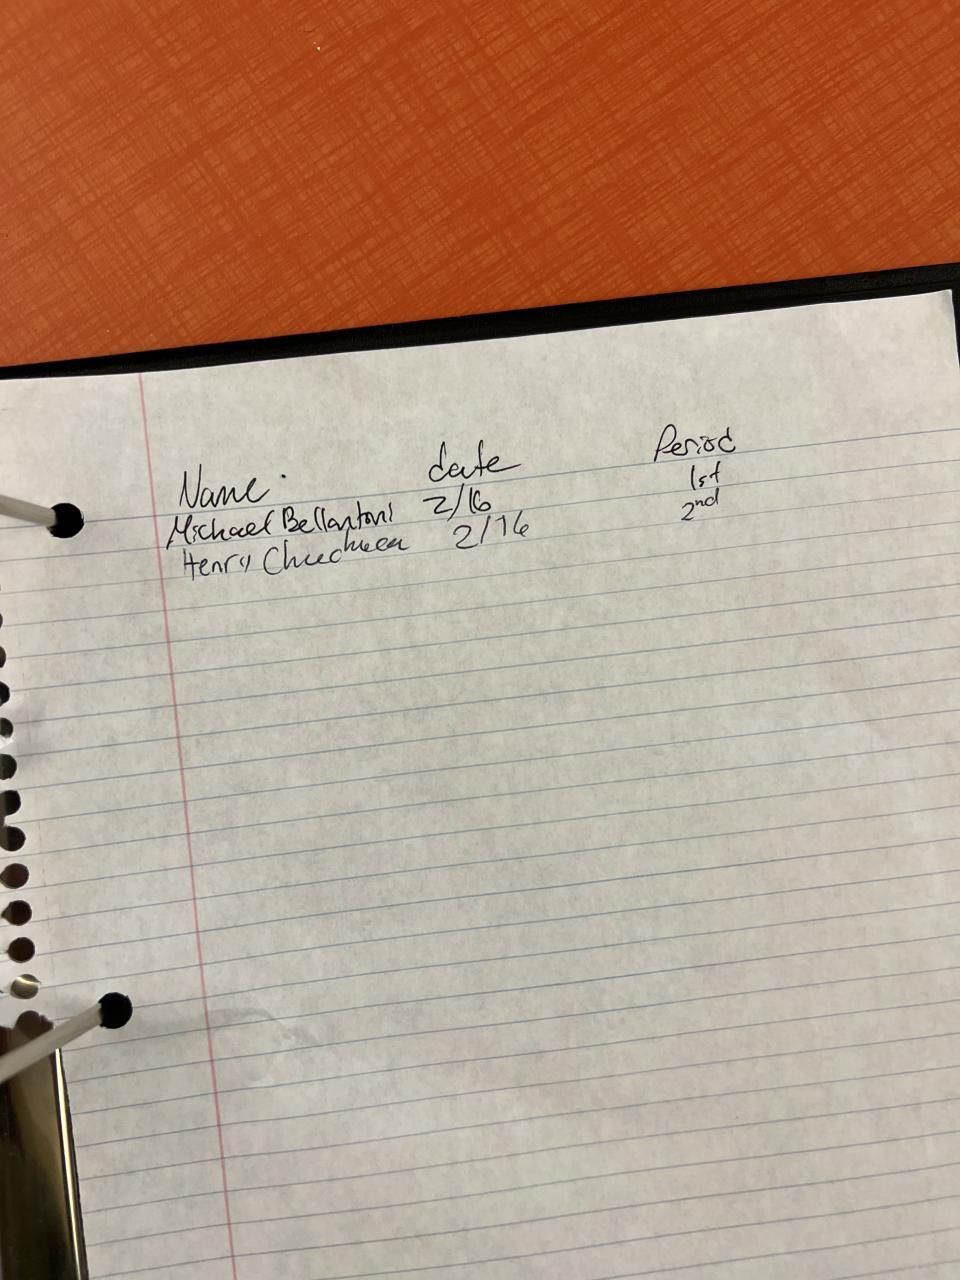 Name date Period
Michael Bellantoni 2/16 1st
Henry 2/16 2nd